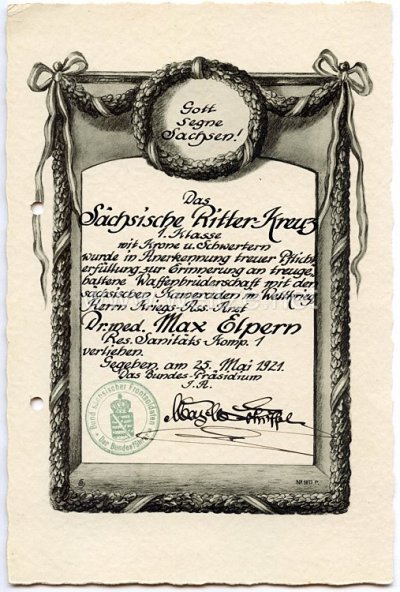 Gott
segne
Sachsen!
Das
Sächsische Ritter-Kreuz
1. Klasse
mit Krone u. Schwertern
wurde in Anerkennung treuer Pflicht
erfüllung zur Erinnerung an treuge,
haltene Waffenbrüderschaft mit den
sächsischen Kameraden im Weltkrieg
Herrn Kriegs-Ass. Arzt
Dr. med. Max Elpern
Res. Sanitäts Komp. 1
verliehen.
Gegeben am 25. Mai 1921.
Das Bundes-Präsidium
I.A.
Bund sächsischer